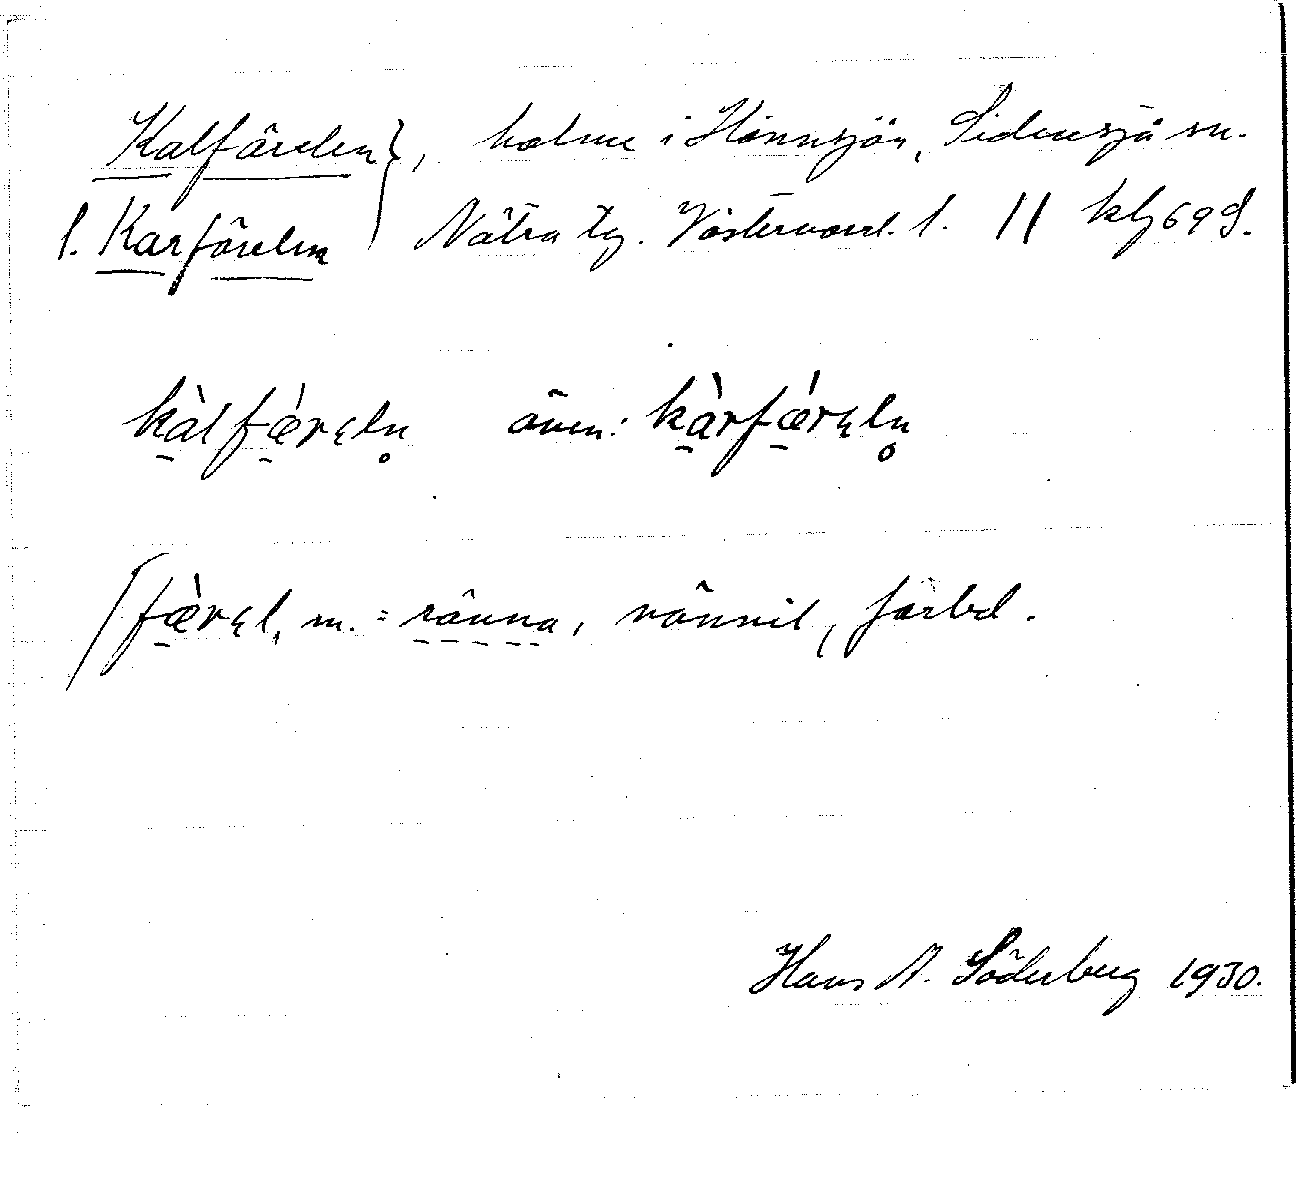 Kalfärelen }, holme i Hännsjön, Sidensjö sn.
l. Karfärelen Nätra tg. Västernorrl. l. 11 kbl 69 S.
kàlfǽrεln̥ även: kàrfǽrεln̥
/fæ̀rεl, m. = ränna, rännil, förbd.
Hans A. Söderberg 1930.